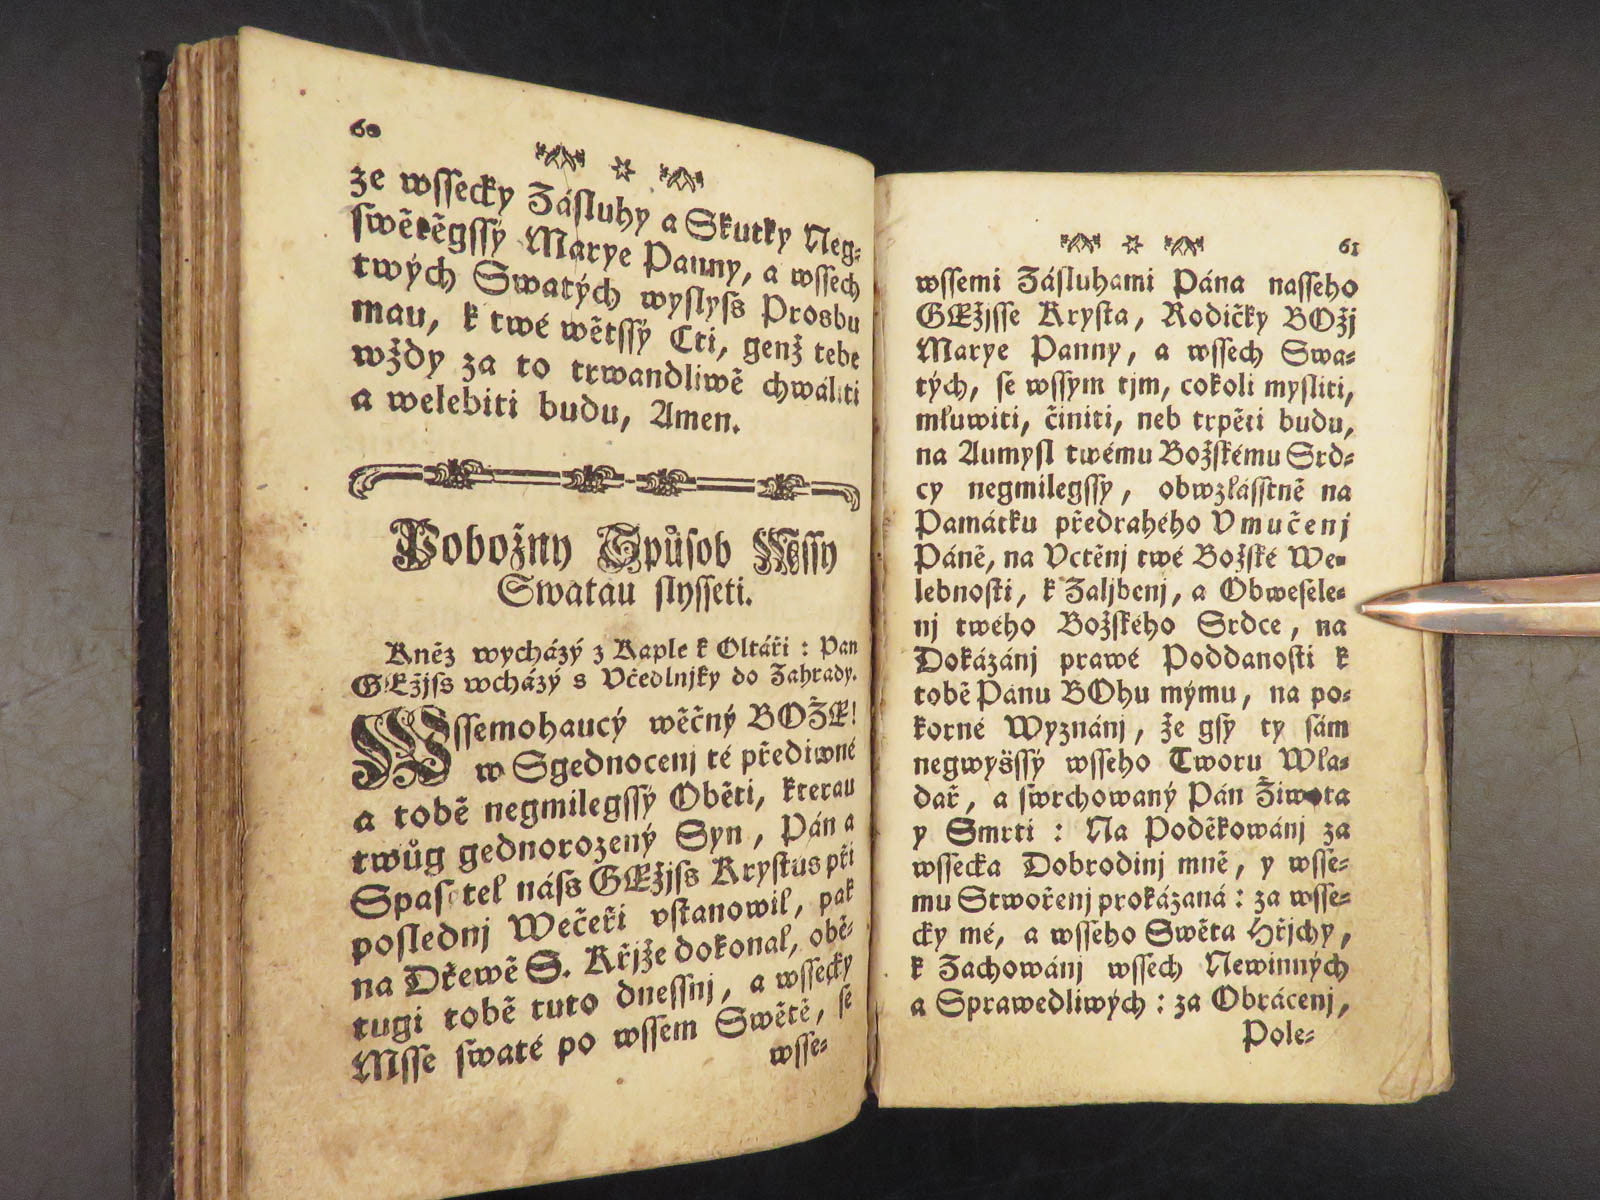 60
že wssecky Zásluhy a Skutky Neg-
swětěgssý Marye Panny, a wssech
twých Swatých wyslyss Prosbu
mau, k twé wětssý Cti, genž tebe
wždy za to trwandliwě chwáliti
a welebiti budu, Amen.
Pobožny Způsob Mssy
Swatau slysseti.
Kněz wycházý z Kaple k Oltáři : Pan
GEžjss wcházý s Včedlnjky do Zahrady.
Wssemohaucý wěčný BOŽE!
w Sgednocenj té předivné
a tobě negmilegssý Oběti, kterau
twůg gednorozený Syn, Pán a
Spasytel náss GEžjss Krystus při
poslednj Wečeři vstanowil, pak
na Dřewě S. Křjže dokonal, obě-
tugi tobě tuto dnessnj, a wssecky
Msse swaté po wssem Swětě, se
wsse-
61
wssemi Zásluhami Pána nasseho
GEžjsse Krysta, Rodičky BOžj
Marye Panny, a wssech Swa-
tých, se wssym tjm, cokoli mysliti,
mluwiti, činiti, neb trpěti budu,
na Aumysl twému Božskému Srd-
cy negmilegssy, obwzlásstně na
Památku předrahého Vmučenj
Páně, na Vctěnj twé Božské We-
lebnosti, k Zaljbenj, a Obwesele-
nj twého Božského Srdce, na
Dokázánj prawé Poddanosti k
tobě Pánu BOhu mýmu, na po-
korné Wyznánj, že gsy ty sám
negwyšssý wsseho Tworu Wla-
dař, a swrchowaný Pán Žiwota
y Smrti : Na Poděkowánj za
wssecka Dobrodinj mně, y wsse-
mu Stwořenj prokázaná : za wsse-
cky mé, a wsseho Swěta Hřjchy,
k Zachowánj wssech Newinných
a Sprawedliwých : za Obrácenj,
Pole-